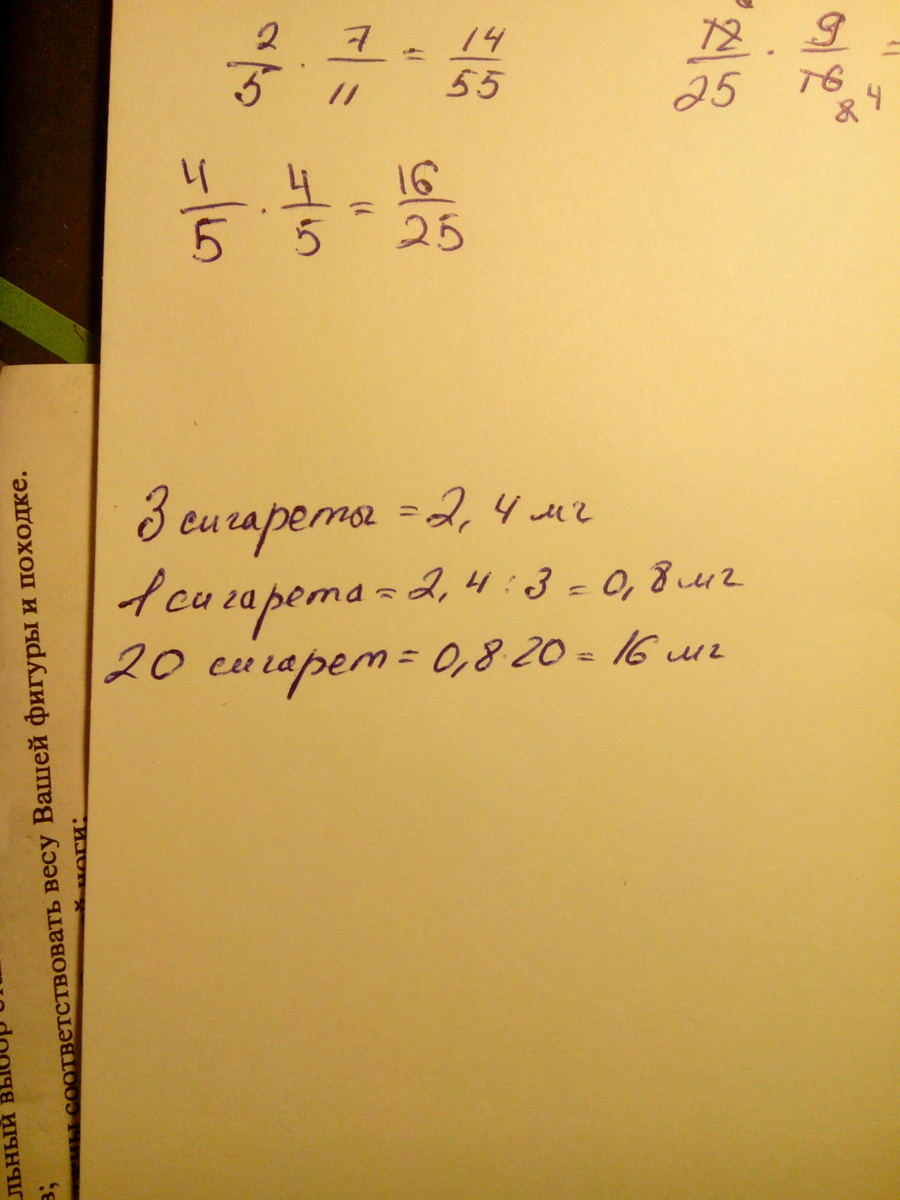 2/5 · 7/11 = 14/55
12/25 · 9/16 =
8 4
4/5 · 4/5 = 16/25
3 сигареты = 2,4 мг
1 сигарета = 2,4 : 3 = 0,8 мг
20 сигарет = 0,8 · 20 = 16 мг
соответствовать весу Вашей фигуры и походке.
выбор